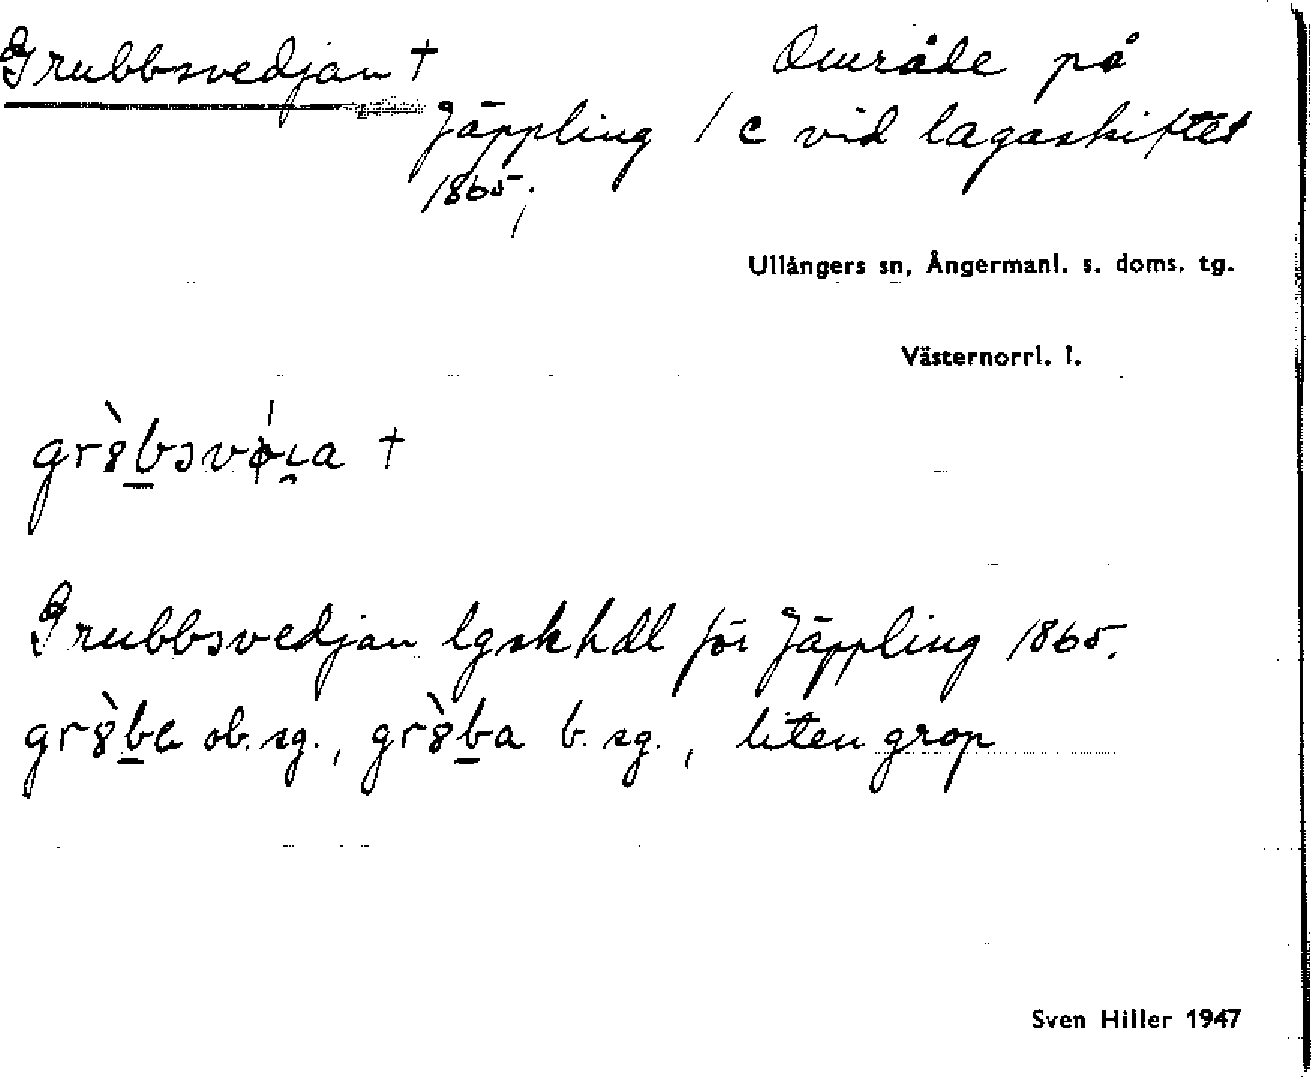 Grubbsvedjan † Område på
Jäppling 1 c vid lagaskiftet
1865;
Ullångers sn, Ångermanl. s. doms. tg.
Västernorrl. l.
†
Grubbsvedjan lgskhdl för Jäppling 1865.
ob. sg., b. sg., liten grop
Sven Hiller 1947